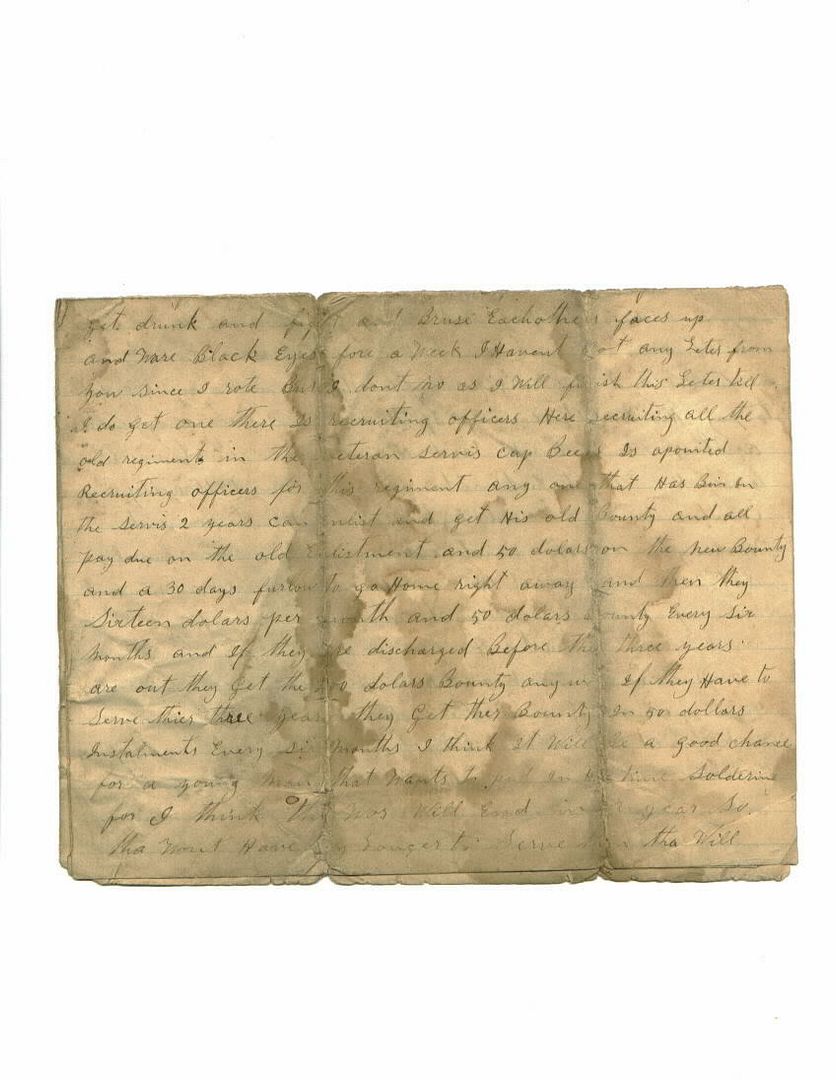 get drunk and fight and Bruse Eachothers faces up
and Ware Black Eyes fore a Week I Havent got any Leter from
you since I rote But I dont no as I Will finish this Leter till
I do get one there Is recruiting officers Here recruiting all the
old regiments in the veteran Servis Cap Is apointed
Recruiting officers for this regiment any one that Has Bin in
the Servis 2 years can enlist and get His old Bounty and all
pay due on the old Enlistment and 50 dolars on the new Bounty
and a 30 days furow to go Home right away and then they
Sixteen dolars per month and 50 dolars Bounty Every Six
months and If they are discharged Before the three years
are out they Get the dolars Bounty If they Have to
Serve thier three years they Get ther Bounty In 50 dollars
Instalments Every Six months I think It Will be a good chance
for a young man that Wants to put In His time Soldering
for I think the War Will End in year So
tha Wont Have Longer to Serve tha Will